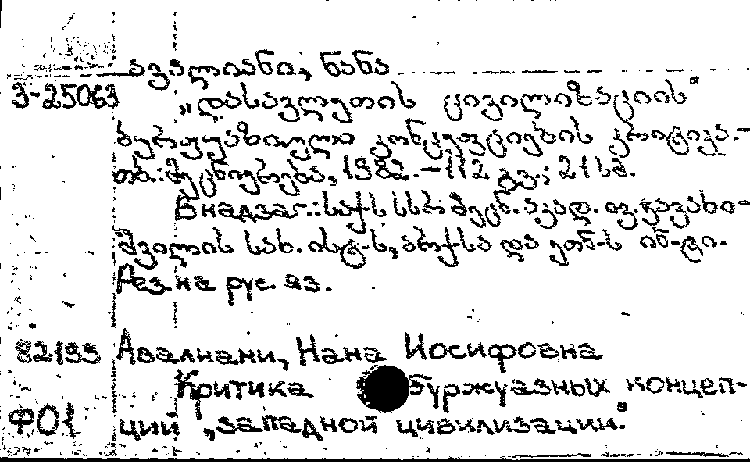 ავალიანი, ნანა
3-25063 „დასავლეთის ცივილიზაციის"
ბურჟუაზიული კონცეფციების კრიტიკა.-
თბ.: მეცნიერება, 1982. - 112 გვ.; 21 სმ.
В надзаг.: საქ. სსრ მეცნ. აკად. ივ. ჯავახი-
შვილის სახ. ისტ-ს, არქ-სა და ეთნ-ს ინ-ტი.
Рез. на рус. яз.
82193 Авалиани, Нана Иосифовна
Критика буржуазных концеп-
Ф01 ций „западной цивилизации."